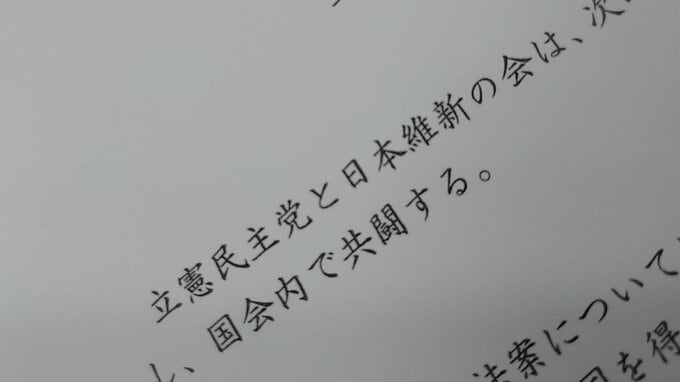 立憲民主党と日本維新の会は、次
し、国会内で共闘する。
法案について
を得